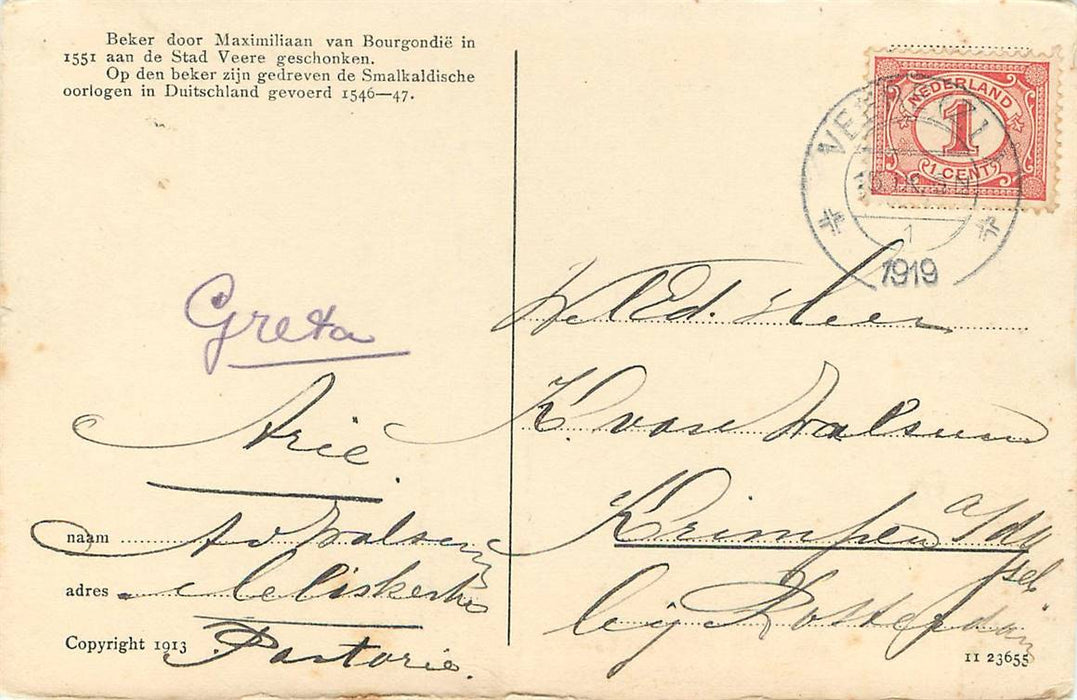 Beker door Maximiliaan van Bourgondië in
1551 aan de Stad Veere geschonken.
Op den beker zijn gedreven de Smalkaldische
oorlogen in Duitschland gevoerd 1546—47.
NEDERLAND
1
1 CENT
1
1919
WelEd. Heer
K. van Walsum
Krimpen a/d
IJsel
bij Rotterdam
Greta
Arie.
naam A v Walsum
adres Meliskerke
Pastorie.
Copyright 1913
11 23655